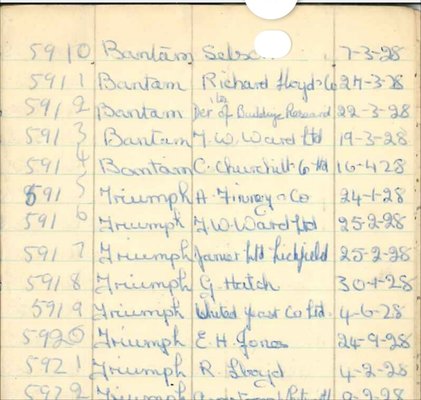 5910 Bantam Selso 7-3-28
5911 Bantam Richard Lloyd & Co 27-3-28
5912 Bantam of Building Research 22-3-28
5913 Bantam T.W. Ward Ltd 19-3-28
5914 Bantam C. Churchill & Co Ltd 16-4-28
5915 Triumph A. Finney & Co 24-1-28
5916 Triumph T.W. Ward Ltd 25-2-28
5917 Triumph Ltd Lichfield 25-2-28
5918 Triumph G. Hatch 30-1-28
5919 Triumph United Yeast Co Ltd. 4-6-28
5920 Triumph E.H. Jones 24-9-28
5921 Triumph R. Lloyd 4-2-28
5922 Triumph 9-2-28